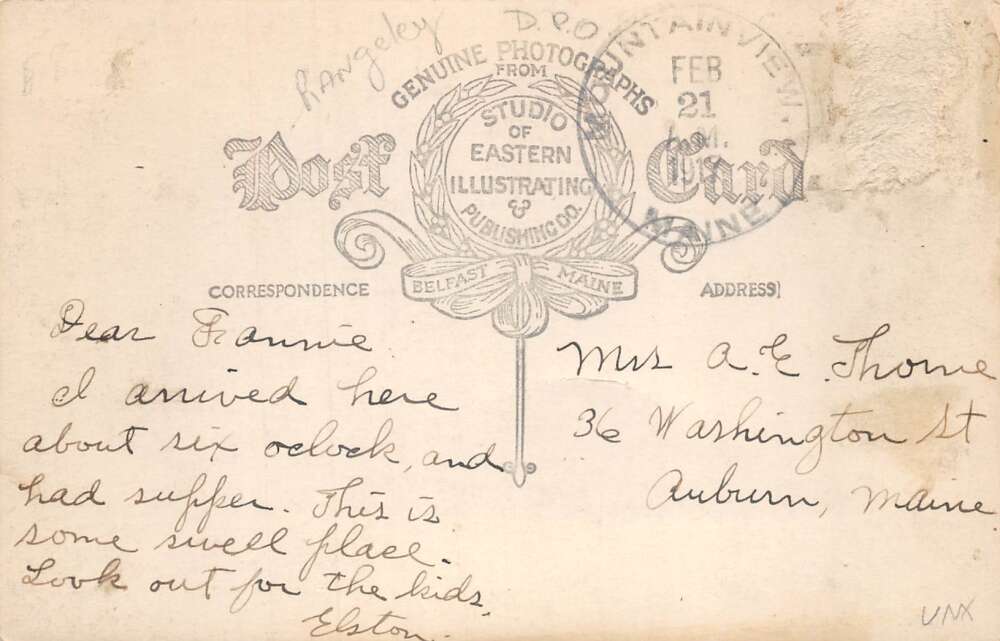 Rangeley D.P.O
GENUINE PHOTOGRAPHS
FROM
STUDIO
OF
EASTERN
ILLUSTRATING
&
PUBLISHING CO.
BELFAST MAINE
Post Card
MOUNTAINVIEW.
FEB
21
A.M.
MAINE
CORRESPONDENCE
ADDRESS
Dear Fannie
I arrived here
about six oclock, and
had supper. This is
some swell place.
Look out for the kids.
Elston.
Mrs A. E. Thorne
36 Washington St
Auburn, Maine
UNX